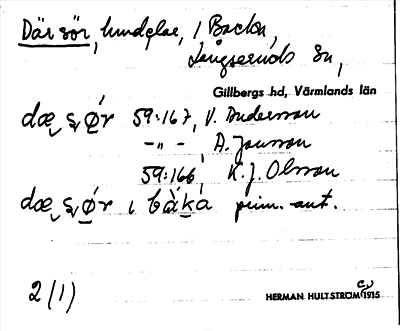 Där sör, hundelar, i Backa,
Långseruds sn,
Gillbergs hd, Värmlands län
dæ, sǿ̜r 59:167, V. Andersson
-"- , A. Jonsson
59:166, K.J. Olsson
dæ, sǿ̜r i bàka prim. ant.
2(1)
HERMAN HULTSTRÖM 1915